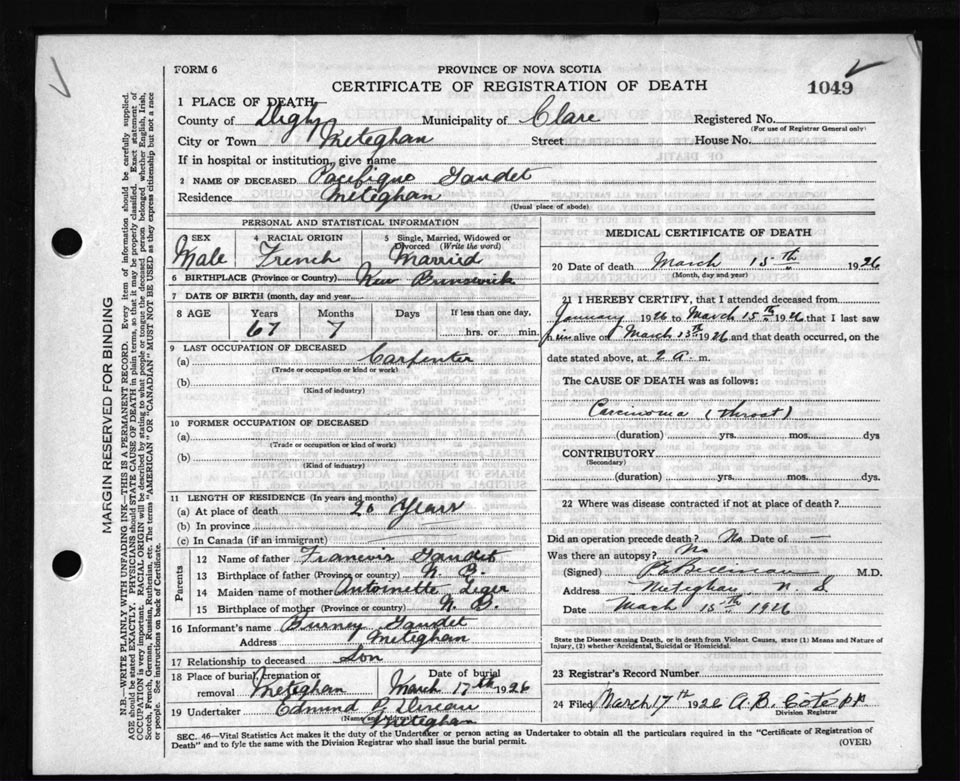 FORM 6
PROVINCE OF NOVA SCOTIA
CERTIFICATE OF REGISTRATION OF DEATH
1049
1 PLACE OF DEATH
County of Digby Municipality of Clare Registered No.
(For use of Registrar General only)
City or Town Meteghan Street House No.
If in hospital or institution, give name
2 NAME OF DECEASED Pacifique Gaudet
Residence Meteghan
(Usual place of abode)
PERSONAL AND STATISTICAL INFORMATION
3 SEX Male
4 RACIAL ORIGIN French
5 Single, Married, Widowed or Divorced (Write the word) Married
6 BIRTHPLACE (Province or Country) New Brunswick
7 DATE OF BIRTH (month, day and year)
8 AGE Years 67 Months 7 Days If less than one day, hrs. or min.
9 LAST OCCUPATION OF DECEASED
(a) Carpenter
(Trade or occupation or kind or work)
(b)
(Kind of industry)
10 FORMER OCCUPATION OF DECEASED
(a)
(Trade or occupation or kind of work)
(b)
(Kind of industry)
11 LENGTH OF RESIDENCE (In years and months)
(a) At place of death 20 Years
(b) In province
(c) In Canada (if an immigrant)
Parents
12 Name of father Gaudet
13 Birthplace of father (Province or country) N. B.
14 Maiden name of mother Antoinette Leger
15 Birthplace of mother (Province or country) N. B.
16 Informant's name Burney Gaudet
Address Meteghan
17 Relationship to deceased Son
18 Place of burial, cremation or removal Meteghan Date of burial March 17th 1926
19 Undertaker Edmund
(Name and Address) Meteghan
MEDICAL CERTIFICATE OF DEATH
20 Date of death March 15th 1926
(Month, day and year)
21 I HEREBY CERTIFY, that I attended deceased from
January 1926 to March 15th 1926 that I last saw
him alive on March 13th 1926 and that death occurred, on the
date stated above, at 2 a. m.
The CAUSE OF DEATH was as follows:
Carcinoma (throat)
(duration) yrs. mos. dys
CONTRIBUTORY
(Secondary)
(duration) yrs. mos. dys.
22 Where was disease contracted if not at place of death?
Did an operation precede death? No Date of —
Was there an autopsy? No
(Signed) M.D.
Address Meteghan, N. S.
Date Mach 15th 1926
State the Disease causing Death, or in death from Violent Causes, state (1) Means and Nature of
Injury, (2) whether Accidental, Suicidal or Homicidal.
23 Registrar's Record Number
24 Filed March 17th 1926 A. B. Coté
Division Registrar
SEC. 46—Vital Statistics Act makes it duty of the Undertaker or person acting as Undertaker to obtain all the particulars required in the "Certificate of Registration of
Death" and to fyle the same with the Division Registrar who shall issue the burial permit.
(OVER)
MARGIN RESERVED FOR BINDING
N.B.—WRITE PLAINLY WITH UNFADING INK—THIS IS A PERMANENT RECORD. Every item of information should be carefully supplied.
AGE should be stated EXACTLY. PHYSICIANS should STATE CAUSE OF DEATH in plain terms, so that it may be properly classified. Exact statement of
OCCUPATION is very important. RACIAL ORIGIN will be described by stating to what people or tongue the deceased person belonged whether English, Irish,
Scotch, French, German, Russian, Ruthenian, etc. The terms "AMERICAN" OR "CANADIAN" MUST NOT BE USED as they express citizenship but not a race
or people. See instructions on back of Certificate.